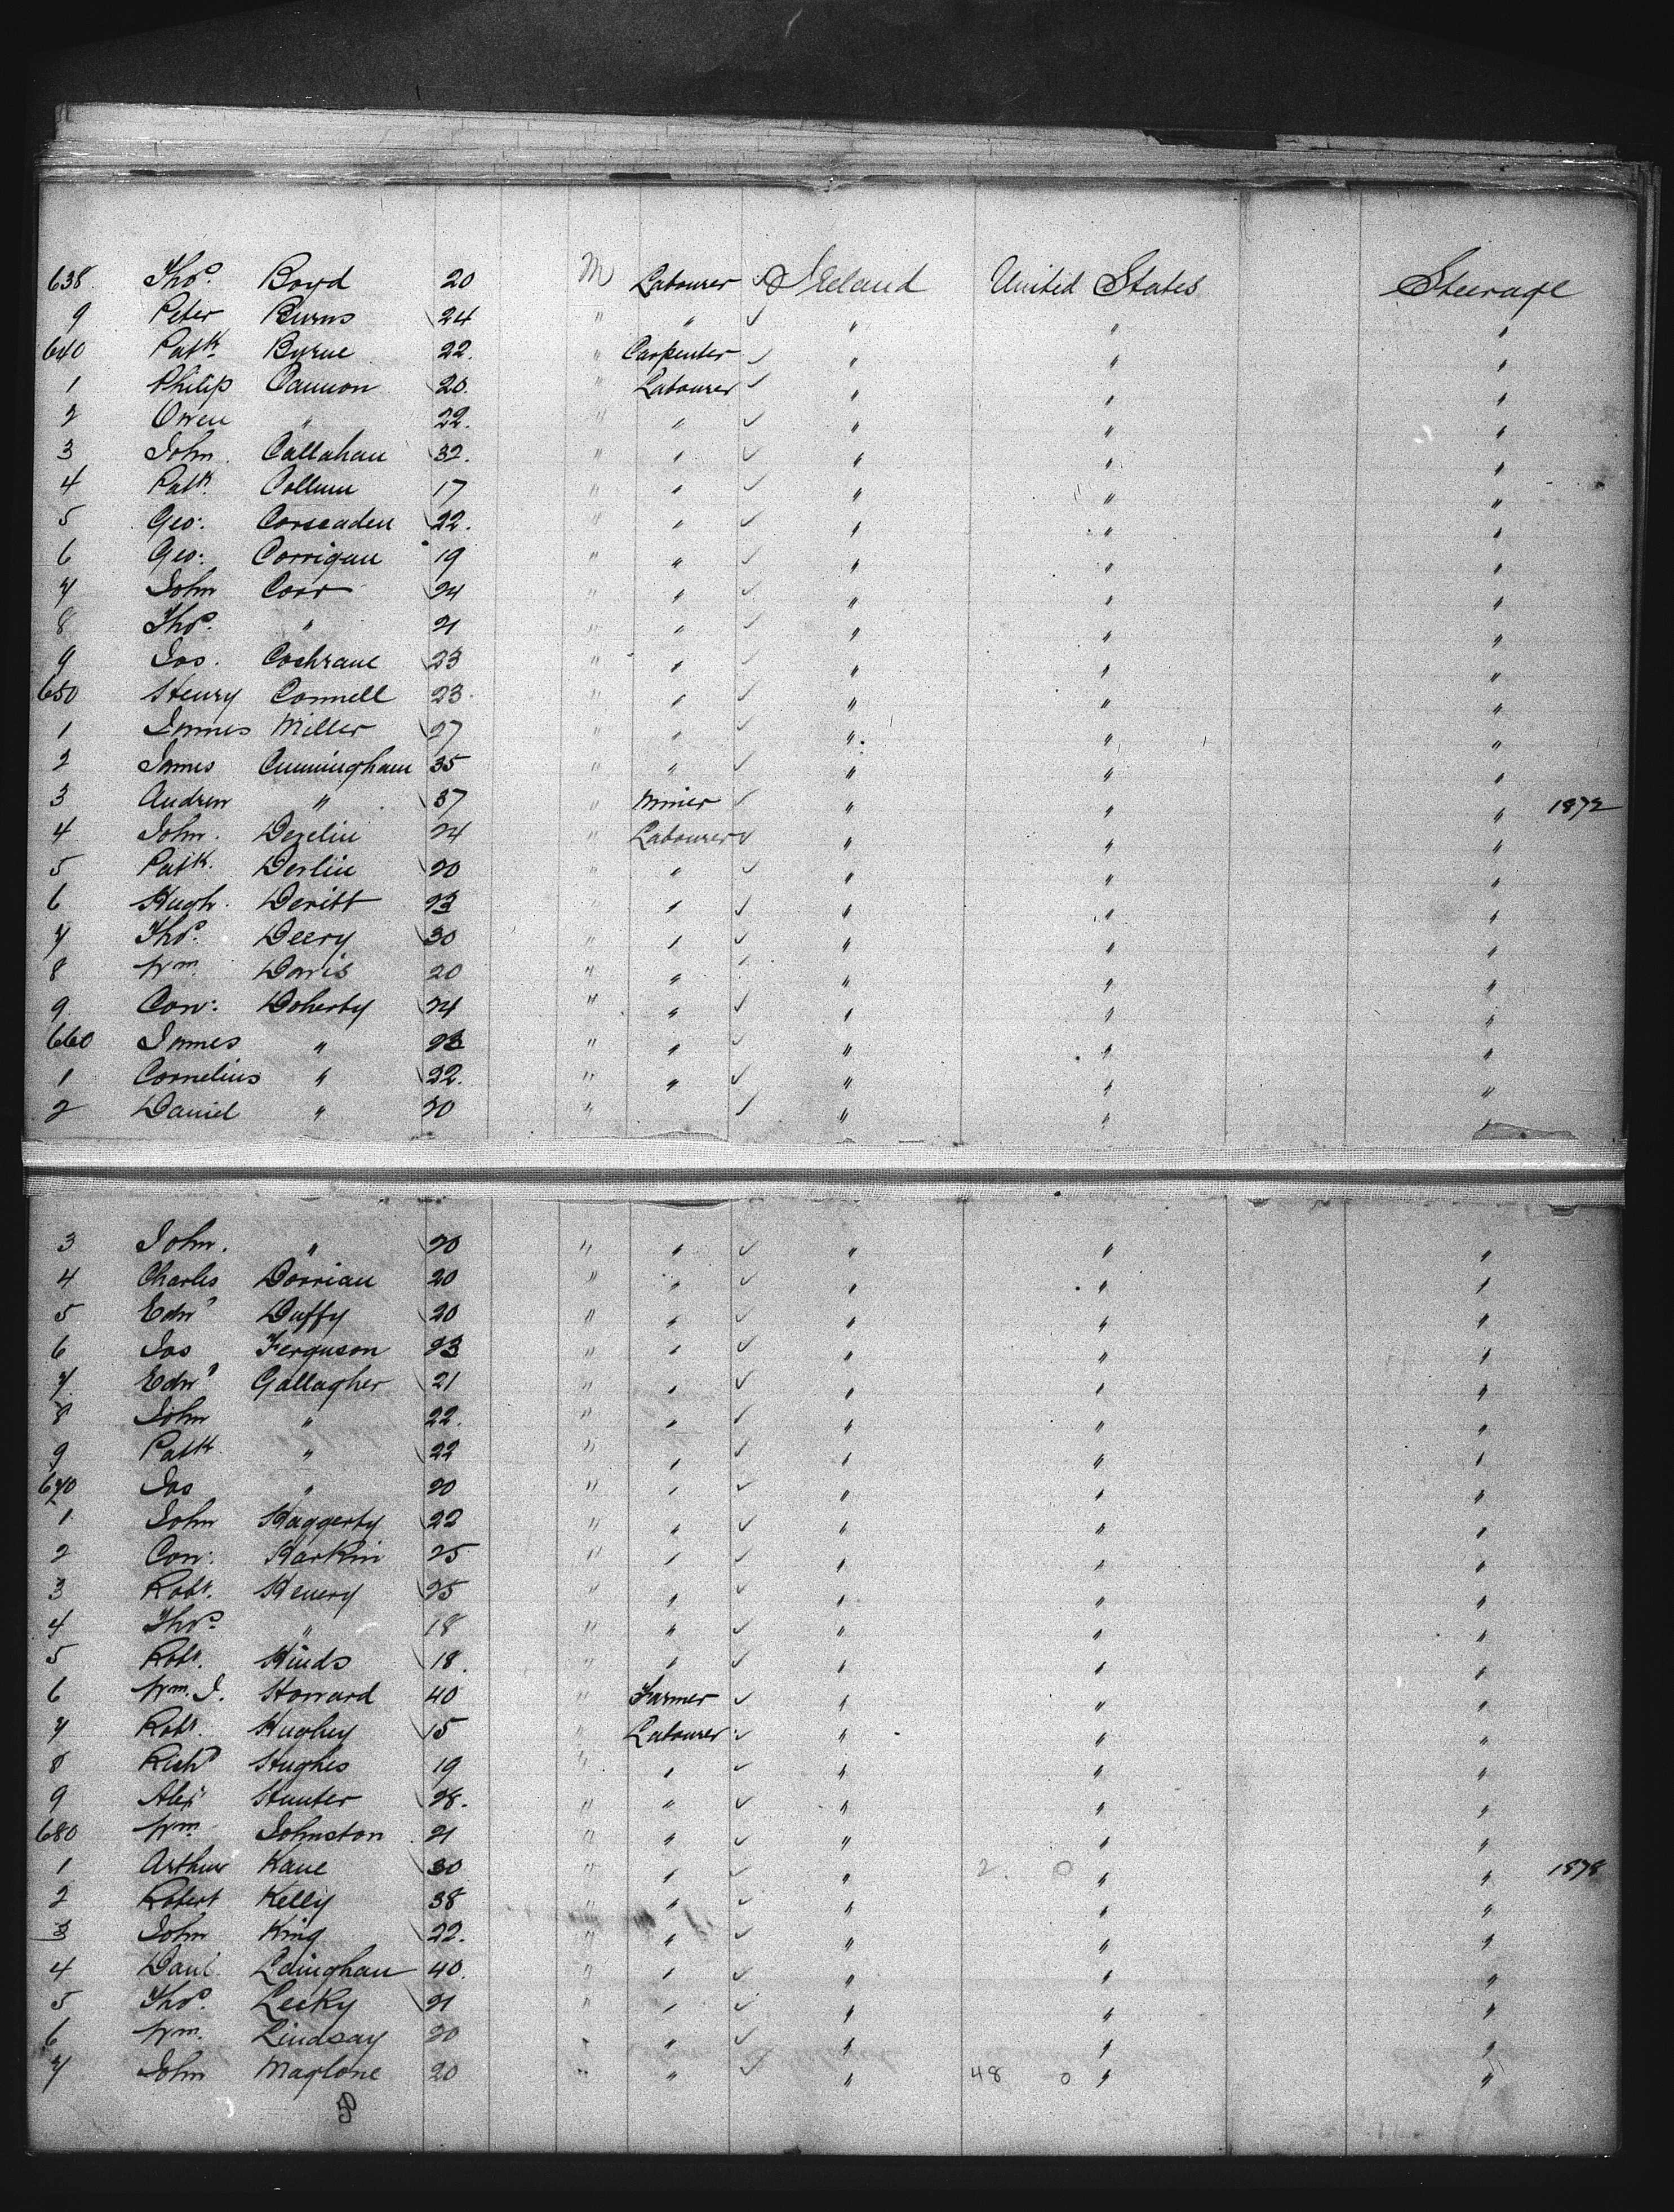 638 Thos. Boyd 20 M Labourer ✓ Ireland United States Steerage
9 Peter Burns 24 " " ✓ " " "
640 Patk. Byrne 22. " Carpenter ✓ " " "
1 Philip Cannon 20. " Labourer ✓ " " "
2 Owen " 22. " " ✓ " " "
3 John Callahan 32. " " ✓ " " "
4 Patk. Collum 17 " " ✓ " " "
5 Geo: Corscaden 22. " " ✓ " " "
6 Geo: Corrigan 19 " " ✓ " " "
7 John Corr 24 " " ✓ " " "
8 Thos. " 21 " " ✓ " " "
9 Jas. Cochrane 23 " " ✓ " " "
650 Henry Connell 23 " " ✓ " " "
1 James Miller 27 " " ✓ " " "
2 James Cunningham 35 " " ✓ " " "
3 Andrew " 37 " Miner ✓ " " " 1872
4 John. 24 " Labourer ✓ " " "
5 Patk. 20 " " ✓ " " "
6 Hugh. Devitt 23 " " ✓ " " "
7 Thos. Deery 30 " " ✓ " " "
8 Wm. Davis 20 " " ✓ " " "
9 Con: Doherty 24 " " ✓ " " "
660 James " 23 " " ✓ " " "
1 Cornelius " 22. " " ✓ " " "
2 Daniel " 20 " ✓ " " "
3 John. " 20 " " ✓ " " "
4 Charles Dorrian 20 " " ✓ " " "
5 Edwd Duffy 20 " " ✓ " " "
6 Jas Ferguson 23 " " ✓ " " "
7. Edwd Gallagher 21 " " ✓ " " "
8 John " 22. " " ✓ " " "
9 Patk " 22 " " ✓ " " "
670 Jas " 20 " " ✓ " " "
1 John Haggerty 22 " " ✓ " " "
2 Con: Harkin 25 " " ✓ " " "
3 Robt. Henery 25 " " ✓ " " "
4 Thos. " 18 " " ✓ " " "
5 Robt. Hinds 18. " " ✓ " " "
6 Wm. J. Howard 40 " Farmer ✓ " " "
7 Robt. Hughey 15 " Labourer ✓ " " "
8 Richd Hughes 19 " " ✓ " " "
9 Alexr Hunter 28. " " ✓ " " "
680 Wm. Johnston 21 " " ✓ " " "
1 Arthur Kane 30 " " ✓ " 2 0 " " 1878
2 Robert Kelly 38 " " ✓ " " "
3 John King 22. " " ✓ " " "
4 Danl. 40. " " ✓ " " "
5 Thos. Lecky 21 " " ✓ " " "
6 Wm. Lindsay 20 " " ✓ " " "
7 John Maglone 20 " " ✓ " 48 0 " "